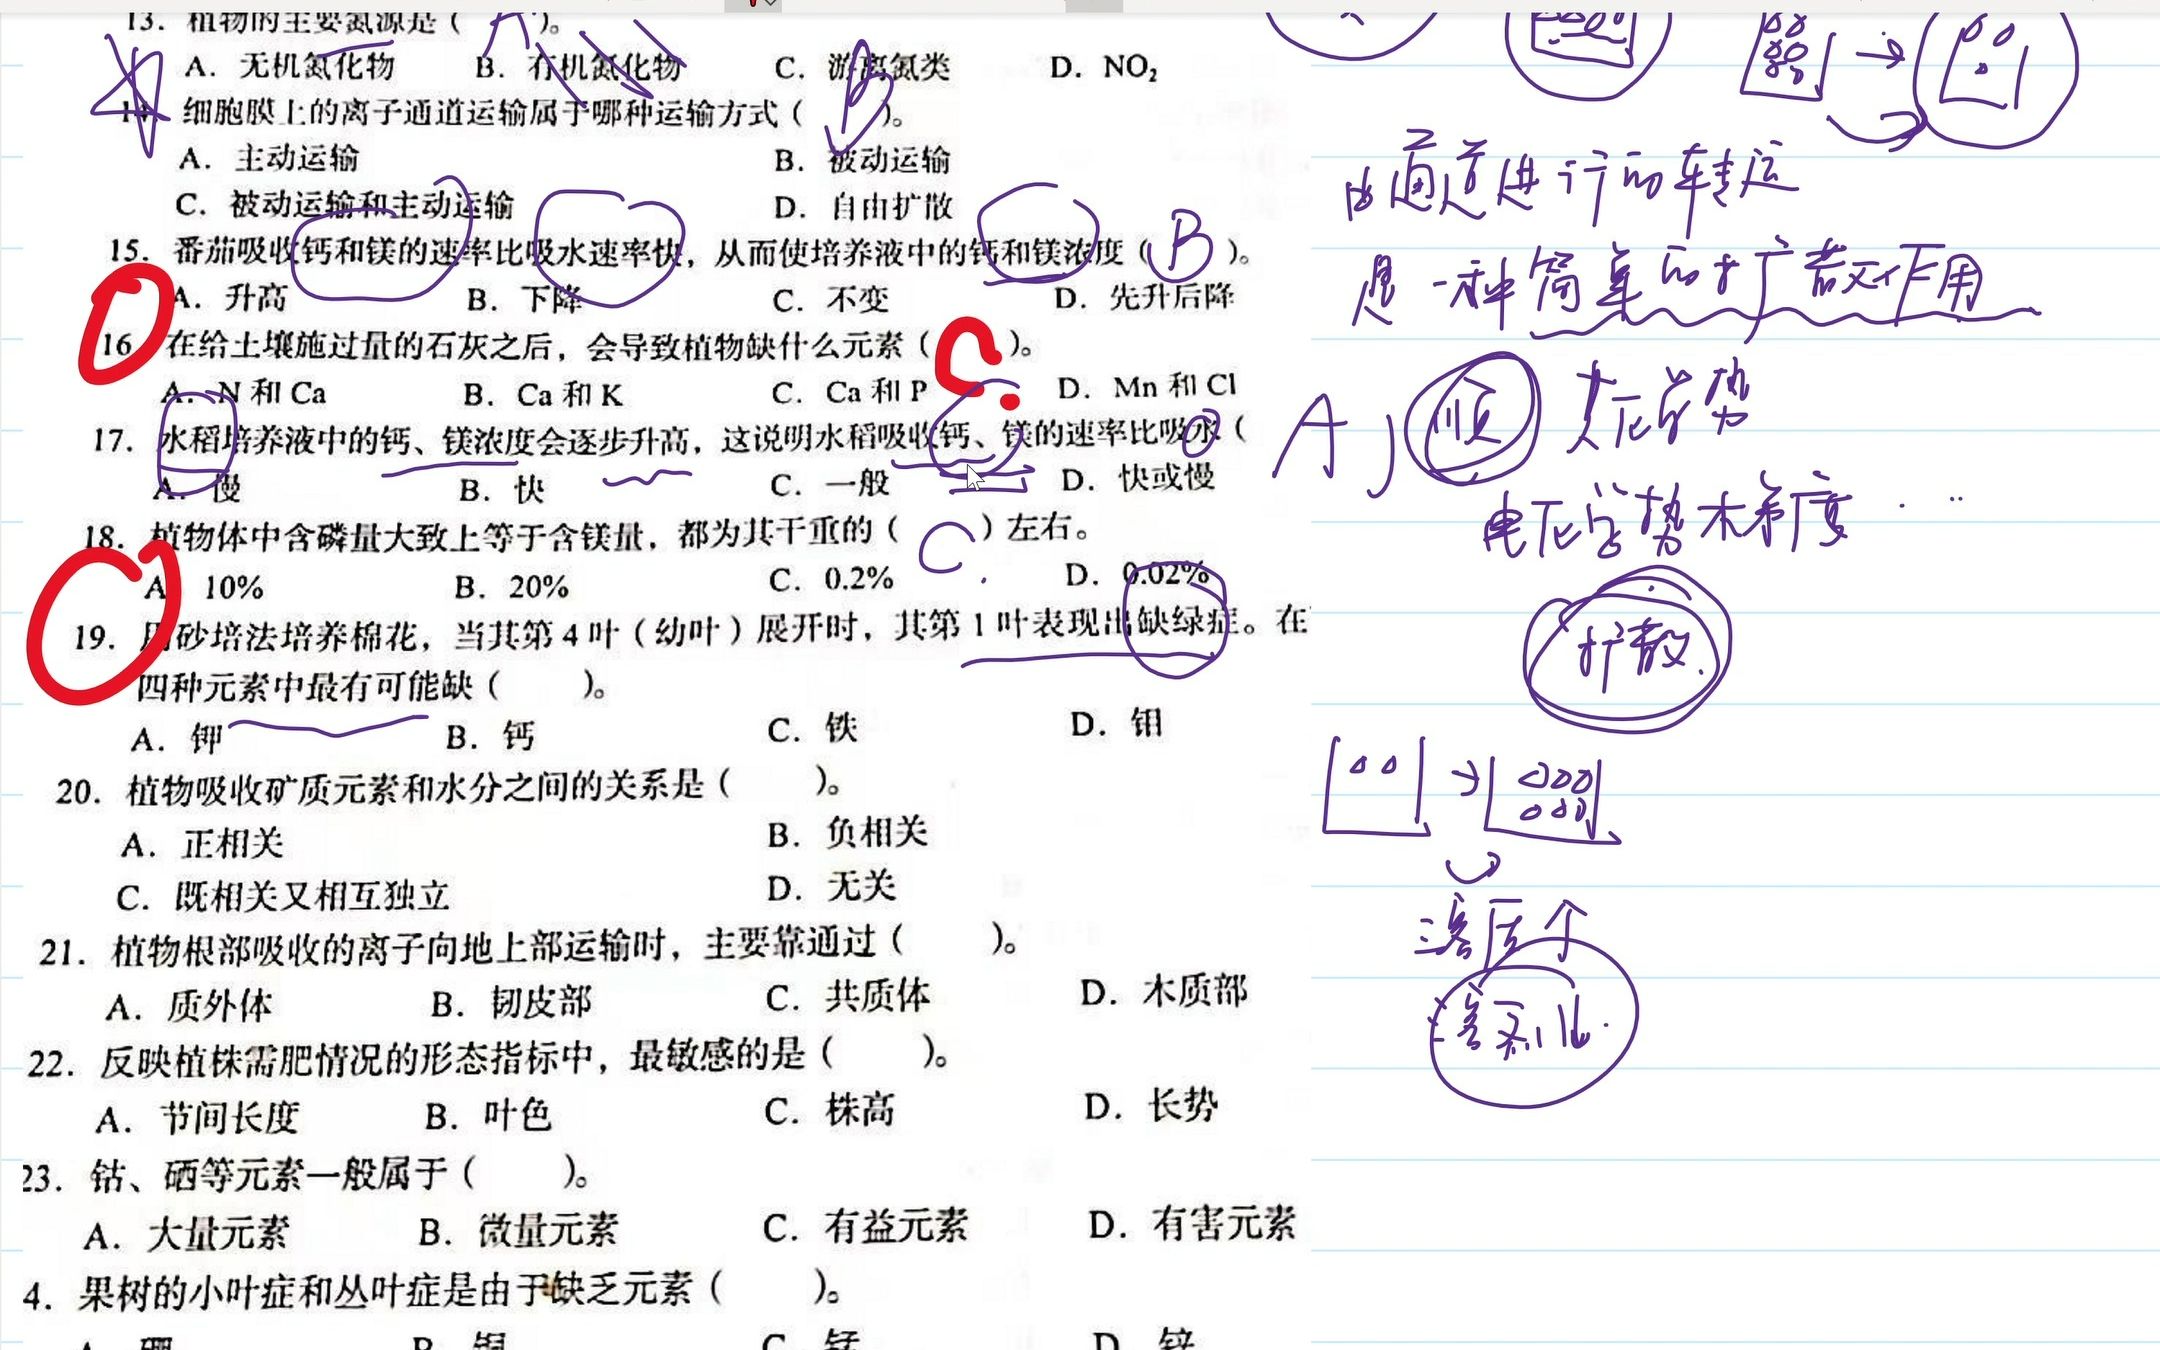 13. 植物的主要氮源是（ A ）。
A. 无机氮化物 B. 有机氮化物 C. 游离氮类 D. NO₂
14. 细胞膜上的离子通道运输属于哪种运输方式（ B ）。
A. 主动运输 B. 被动运输
C. 被动运输和主动运输 D. 自由扩散
15. 番茄吸收钙和镁的速率比吸水速率快，从而使培养液中的钙和镁浓度（ B ）。
A. 升高 B. 下降 C. 不变 D. 先升后降
16. 在给土壤施过量的石灰之后，会导致植物缺什么元素（ ）。
A. N 和 Ca B. Ca 和 K C. Ca 和 P D. Mn 和 Cl
17. 水稻培养液中的钙、镁浓度会逐步升高，这说明水稻吸收钙、镁的速率比吸水（
A. 慢 B. 快 C. 一般 D. 快或慢
18. 植物体中含磷量大致上等于含镁量，都为其干重的（ C. ）左右。
A. 10% B. 20% C. 0.2% D. 0.02%
19. 用砂培法培养棉花，当其第 4 叶（幼叶）展开时，其第 1 叶表现出缺绿症。在
四种元素中最有可能缺（ ）。
A. 钾 B. 钙 C. 铁 D. 钼
20. 植物吸收矿质元素和水分之间的关系是（ ）。
A. 正相关 B. 负相关
C. 既相关又相互独立 D. 无关
21. 植物根部吸收的离子向地上部运输时，主要靠通过（ ）。
A. 质外体 B. 韧皮部 C. 共质体 D. 木质部
22. 反映植株需肥情况的形态指标中，最敏感的是（ ）。
A. 节间长度 B. 叶色 C. 株高 D. 长势
23. 钴、硒等元素一般属于（ ）。
A. 大量元素 B. 微量元素 C. 有益元素 D. 有害元素
4. 果树的小叶症和丛叶症是由于缺乏元素（ ）。
A. 硼 B. 铜 C. 锰 D. 锌
由通道进行的转运
是一种简单的扩散作用
A 顺 化学势
电化学势梯度
扩散
浓度个